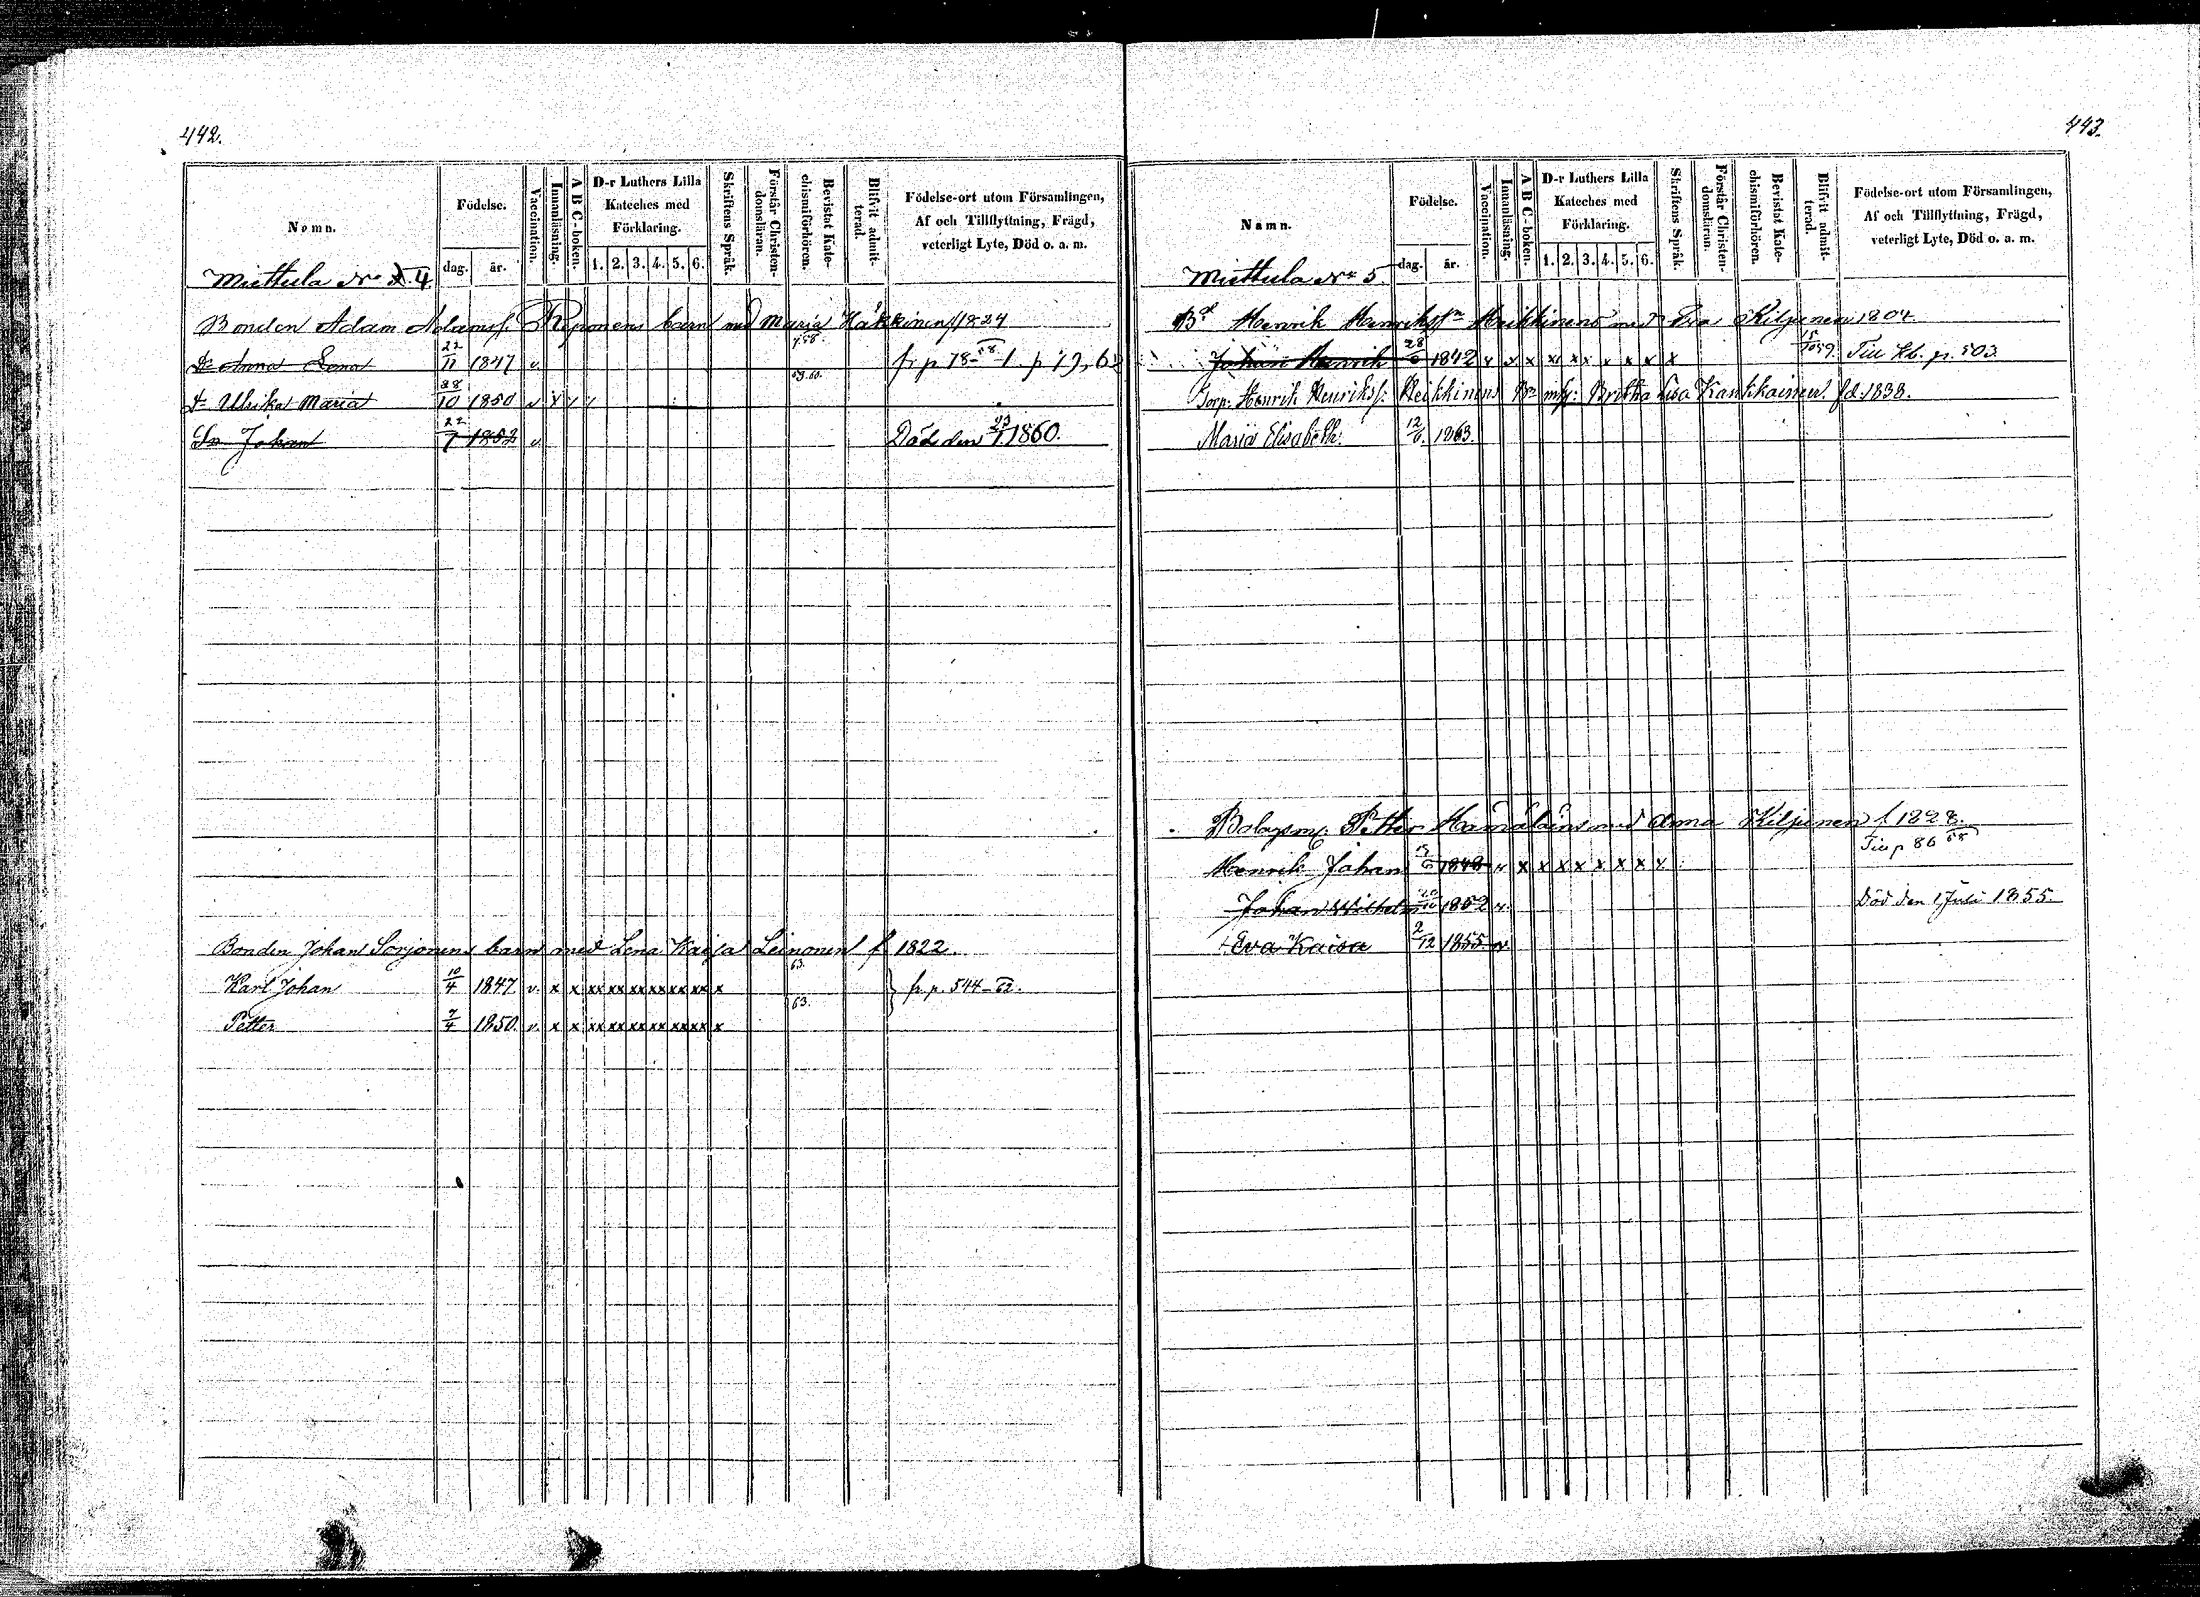 442.
Namn.
Födelse.
dag. år.
Vaccination.
Innanläsning.
A B C-boken.
D-r Luthers Lilla Kateches med Förklaring.
1. 2. 3. 4. 5. 6.
Skriftens Språk.
Förstår Christendomsläran.
Bevistat Katechismiförhören.
Blifvit admitterad.
Födelse-ort utom Församlingen,
Af och Tillflyttning, Frägd,
veterligt Lyte, Död o. a. m.
Miettula No 4
Bonden Adam Adamsf. Reponens barn med Maria Häkkinen f 1824
Dr Anna Lena 22/11 1847 v.
Dr Ulrika Maria 28/10 1850 v x
Sn Johan 22/7 1852 v Död den 1860.
Bonden Johan Sorjonens barn med Lena Kaisa Leinonen f 1822.
Karl Johan 10/4 1847 v. x x xx xx xx xx xx xx x 63. fr. p. 544-62.
Petter 7/4 1850. v. x x xx xx xx xx xx xx x 63.
443.
Namn.
Födelse.
dag. år.
Vaccination.
Innanläsning.
A B C-boken.
D-r Luthers Lilla Kateches med Förklaring.
1. 2. 3. 4. 5. 6.
Skriftens Språk.
Förstår Christendomsläran.
Bevistat Katechismiförhören.
Blifvit admitterad.
Födelse-ort utom Församlingen,
Af och Tillflyttning, Frägd,
veterligt Lyte, Död o. a. m.
Miettula No 5.
Bd Henrik Henriksson Heikkinens med Eva Kiljunen 1804.
Johan Henrik 1842 v x x x x x x x x x Till kb. p. 503.
Torp. Henrik Henriksf: Heikkinens Bn m/h: Britha Lisa Kankkainen. fd. 1838.
Maria Elisabeth. 12/6. 1863.
Bolagsm. Petter Hämäläins med Anna Kiljunen f 1828.
Henrik Johan 1848 v x x x x x x x x Till p 86 58
Johan Wilhelm 1852 v. Död den 1 Juli 1855.
Eva Kaisa 2/12 1855 v